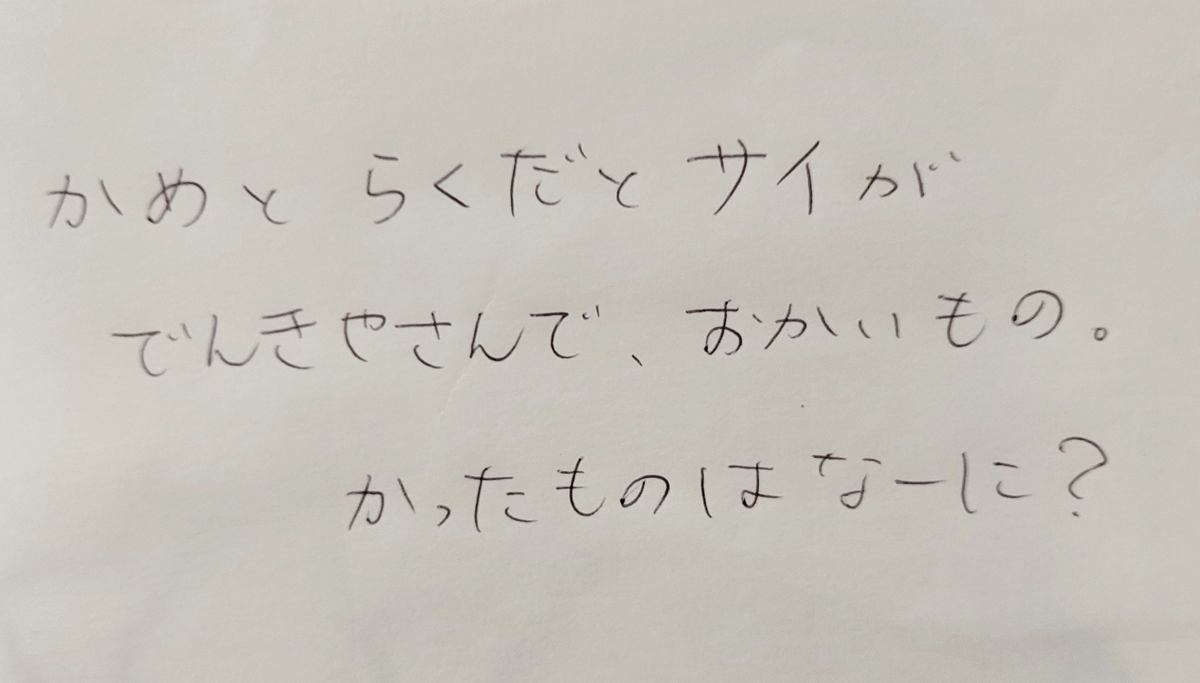 かめと らくだと サイが
でんきやさんで、おかいもの。
かったものは なーに?